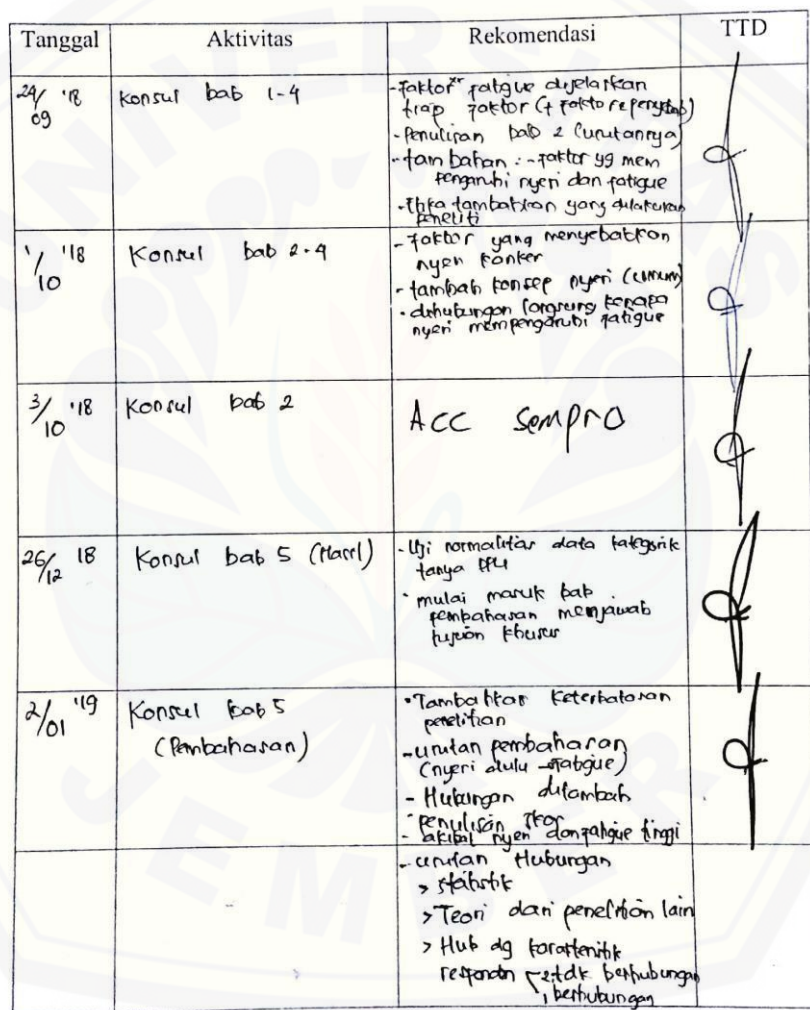 Tanggal Aktivitas Rekomendasi TTD
24/09 '18 Konsul bab 1-4
- Faktor2 fatigue dijelaskan
tiap faktor (+ faktor penyebab)
- Penulisan bab 2 (urutannya)
- tambahan : - faktor yg mem
pengaruhi nyeri dan fatigue
- Etika tambahkan yang dilakukan
peneliti
1/10 '18 Konsul bab 2-4
- Faktor yang menyebabkan
nyeri kanker
- tambah konsep nyeri (umum)
- dihubungan langsung kenapa
nyeri mempengaruhi fatigue
3/10 '18 Konsul bab 2
ACC sempro
26/12 18 Konsul bab 5 (Hasil)
- Uji normalitas data kategorik
tanya
- mulai masuk bab
pembahasan menjawab
tujuan khusus
2/01 '19 Konsul bab 5
(Pembahasan)
- Tambahkan keterbatasan
penelitian
- urutan pembahasan
(nyeri dulu - fatigue)
- Hubungan ditambah
- Penulisan skor
- akibat nyeri dan fatigue tinggi
- urutan Hubungan
> statistik
> Teori dari penelitian lain
> Hub dg karakteristik
responden 2. tdk berhubungan
1. berhubungan
UNIVERSITAS
JEMBER